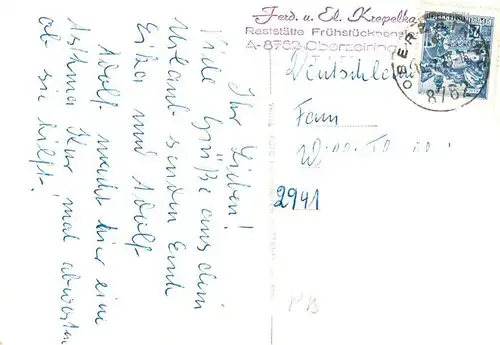 Ihr Lieben!
Viele Grüße aus dem
Urlaub senden Euch
und Adolf
Adolf macht hier eine
Asthma Kur, mal abwarten
ob sie hilft.
Ferd. u. El.
Raststätte Frühstückspens
A-8762 Oberzeiring
Deutschland
Fam
2941
8762
PB